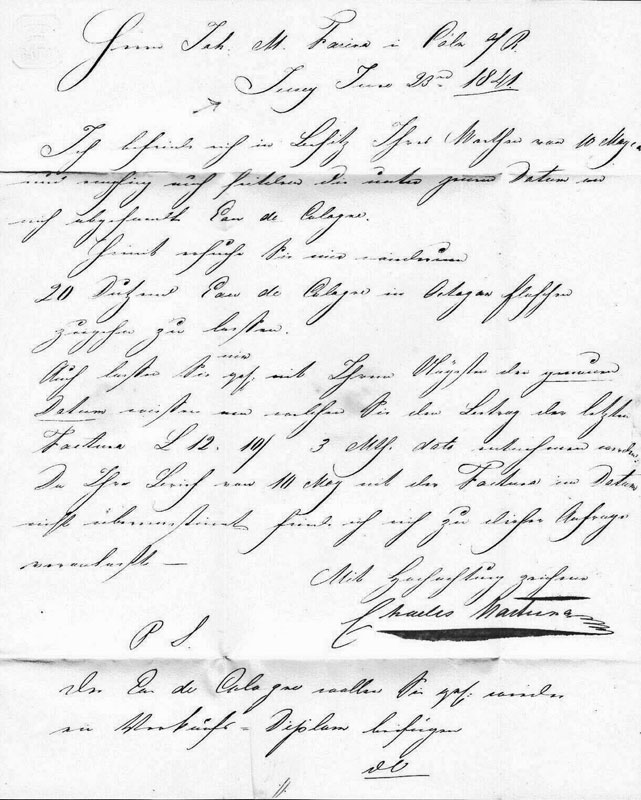 Herrn Joh. M. Farina in Cöln a/R.
Juny 23rd 1841.
Ich befinde mich im Besitz Ihres Werthen von 10 May
und empfing auch seitdem die unter jenem Datum an
mich abgesandte Eau de Cologne.
Hiermit ersuche Sie mir wiederum
20 Dutzend Eau de Cologne in Octagon Flaschen
zugehen zu lassen.
Auch lassen Sie mir gef. mit Ihrem Nächsten den genauen
Datum wissen an welchen Sie den Betrag der letzten
Factura L 12. 10/ 3 Mth. dato entnehmen werden.
Da Ihr Brief von 10 May mit der Factura im Datum
nicht übereinstimmt finde ich mich zu dieser Anfrage
veranlasst —
Mit Hochachtung zeichne
Charles
P S.
Der Eau de Cologne wollen Sie gef. wieder
ein Verkaufs = Diplom beifügen
do